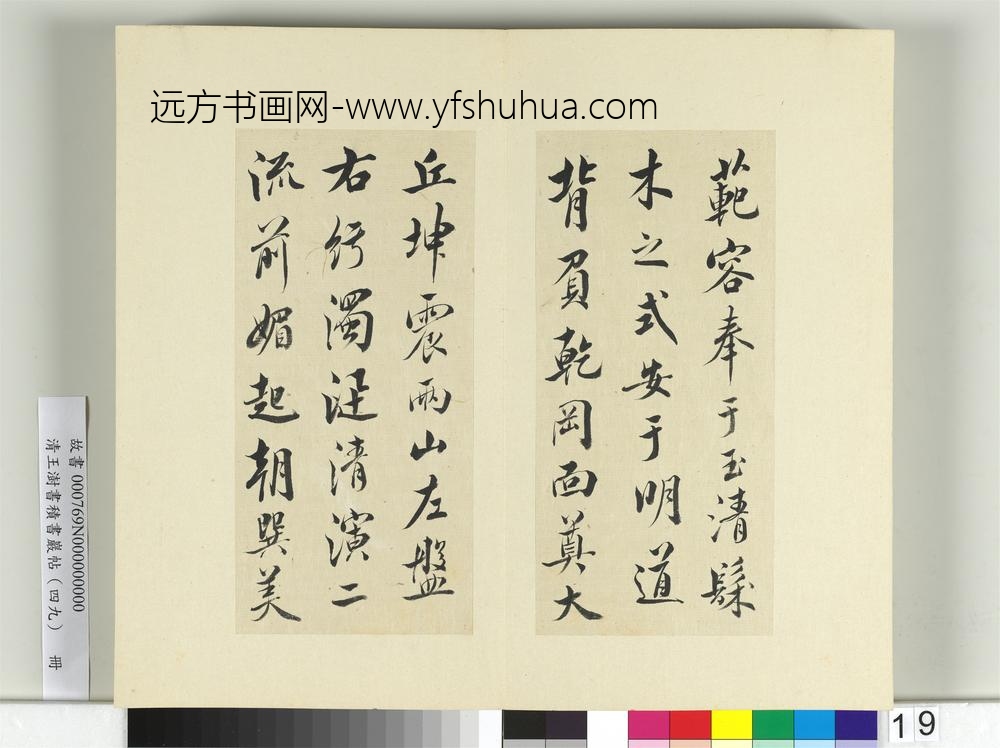 远方书画网-www.yfshuhua.com
範容奉于玉清髹
木之式安于明道
背負乾岡面奠大
丘坤震兩山左盤
右紆濁涇清濱二
流前媚起朝巽美
故書000769N000000000
清王澍書積書巖帖(四九) 冊
19